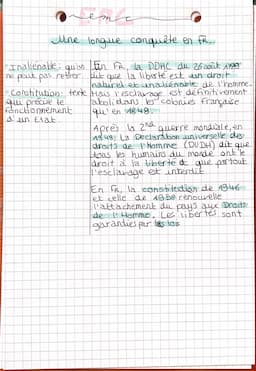 EMC
Une longue conquête en FR
- Inaliénable: qu'on ne peut pas retirer
- Constitution: texte qui précise le fonctionnement d'un Etat
En FR, la DDHC du 26 août 1789
dit que la liberté est un droit
naturel et inaliénable de l'homme.
Mais l'esclavage est définitivement
aboli dans les colonies française
qu'en 1848.
Après la 2nd guerre mondiale, en
1948, La Déclaration universelle des
droits de l'homme (DUDH) dit que
tous les humains du monde ont le
droit à la liberté et que partout
l'esclavage est interdit
En FR, la constitution de 1946
et celle de 1958 renouvelle
l'attachement du pays aux Droits
de l'Homme. Les libertés sont
garanties par les lois